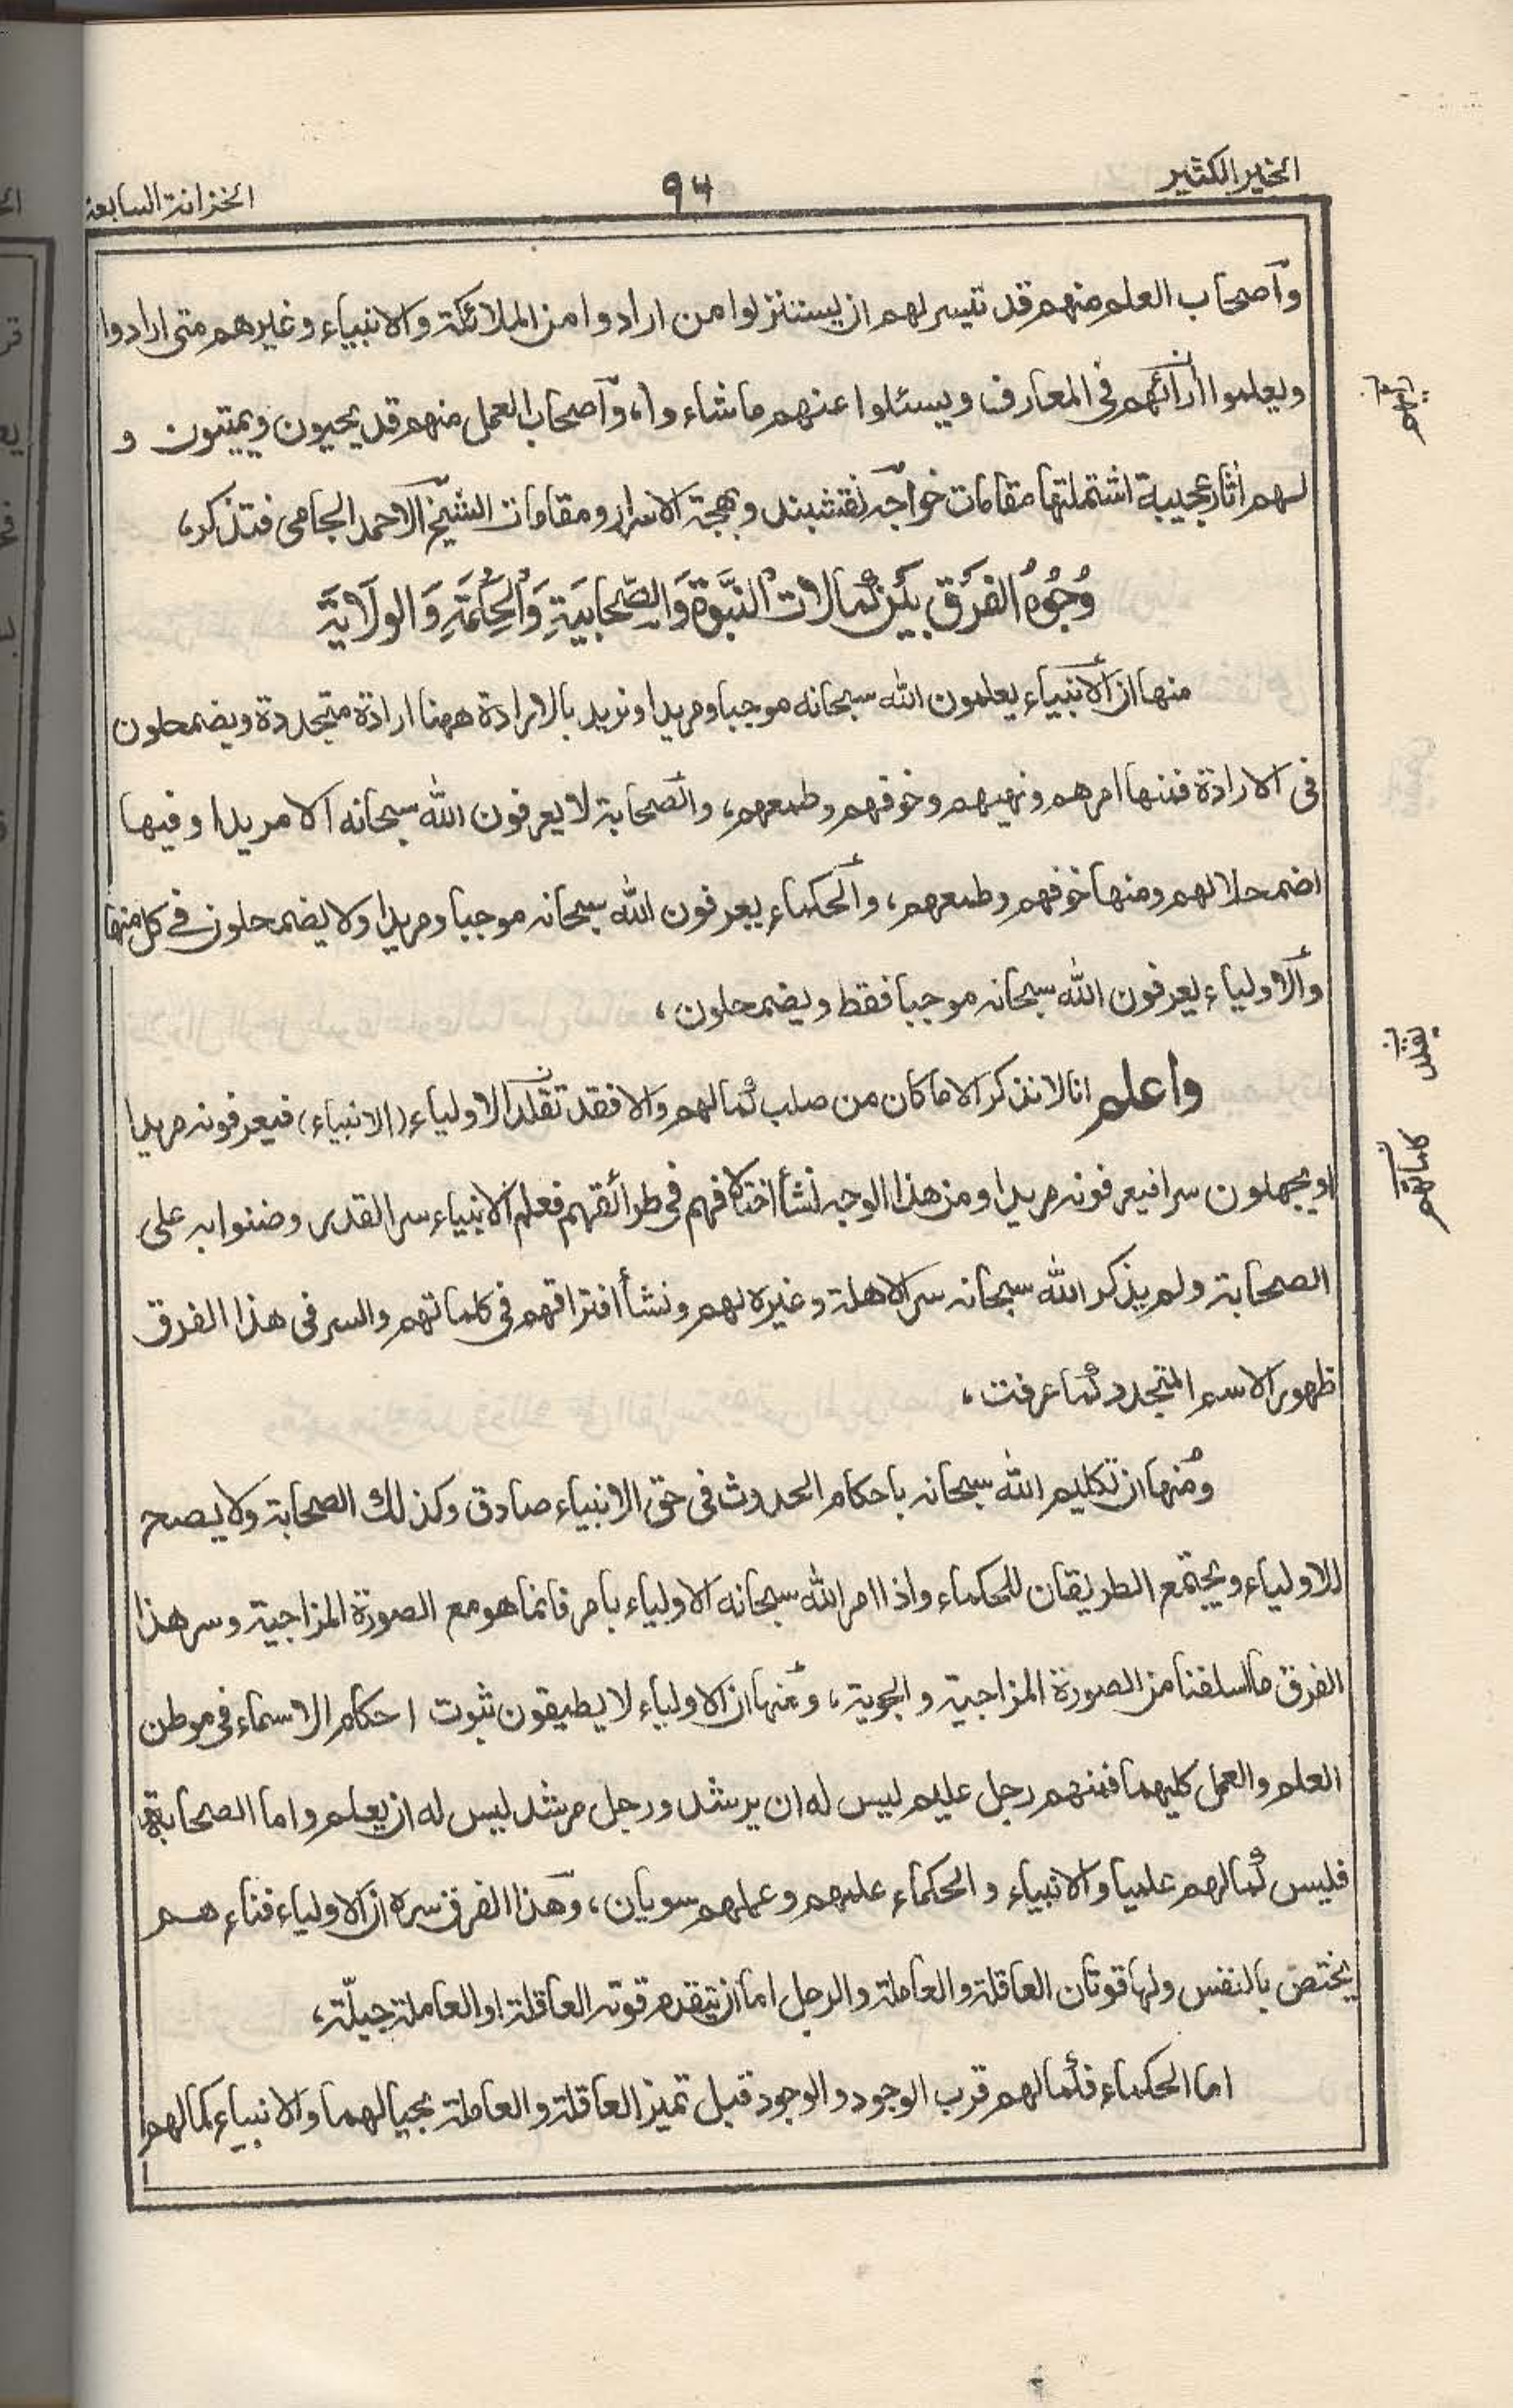 الخير الكثير
٩٤
الخزانة السابعة
وأصحاب العلم منهم قد تيسر لهم ان يستنزلوا من ارادوا من الملائكة والانبياء وغيرهم متى ارادوا
ويعلموا آرائهم في المعارف ويسئلوا عنهم ماشاءوا، وأصحاب العمل منهم قد يحيون ويميتون و
لهم اثار عجيبة اشتملتها مقامات خواجه نقشبند وبهجة الاسرار ومقامات الشيخ الاحمد الجامى فتذكر،
وُجُوهُ الفَرَق بَيْن كُمالات النَّبوة وَالصَّحابَيَةِ وَالحِكُمَةِ وَالولَايَة
منها ان الانبياء يعلمون الله سبحانه موجبا ومريدا ونريد بالارادة ههنا ارادة متجددة ويضمحلون
فى الارادة فمنها امرهم ونهيهم وخوفهم وطمعهم، والصحابة لا يعرفون الله سبحانه الا مريدا وفيها
اضمحلالهم ومنها خوفهم وطمعهم، والحكماء يعرفون الله سبحانه موجبا ومريدا ولا يضمحلون في كل منها
والاولياء يعرفون الله سبحانه موجبا فقط ويضمحلون،
واعلم انا لا نذكر الا ما كان من صلب كمالهم والا فقد تقلد الاولياء (الانبياء) فيعرفونه مريدا
او يجهلون سرا فيعرفونه مريدا ومن هذا الوجه نشأ اختلافهم في طرائقهم فعلم الانبياء سر القدر وضنوا به على
الصحابة ولم يذكر الله سبحانه سر الاهلة وغيره لهم ونشأ افتراقهم في كلماتهم والسر فى هذا الفرق
ظهور الاسم المتجدد كما عرفت،
ومنها ان تكليم الله سبحانه باحكام الحدوث فى حق الانبياء صادق وكذلك الصحابة ولا يصح
للاولياء ويجتمع الطريقان للحكماء واذا امر الله سبحانه الاولياء بامر فانما هو مع الصورة المزاجية وسر هذا
الفرق ما اسلفنا من الصورة المزاجية والجوية، ومنها ان الاولياء لا يطيقون ثبوت احكام الاسماء فى موطن
العلم والعمل كليهما فمنهم رجل عليم ليس له ان يرشد ورجل مرشد ليس له ان يعلم واما الصحابة
فليس كمالهم علميا والانبياء والحكماء علمهم وعملهم سويان، وهذا الفرق سره ان الاولياء فناءهم
يختص بالنفس ولها قوتان العاقلة والعاملة والرجل اما ان يتقدم قوته العاقلة او العاملة جبلّة،
اما الحكماء فكمالهم قرب الوجود والوجود قبل تميز العاقلة والعاملة بحيالهما والانبياء كمالهم
كلماتهم